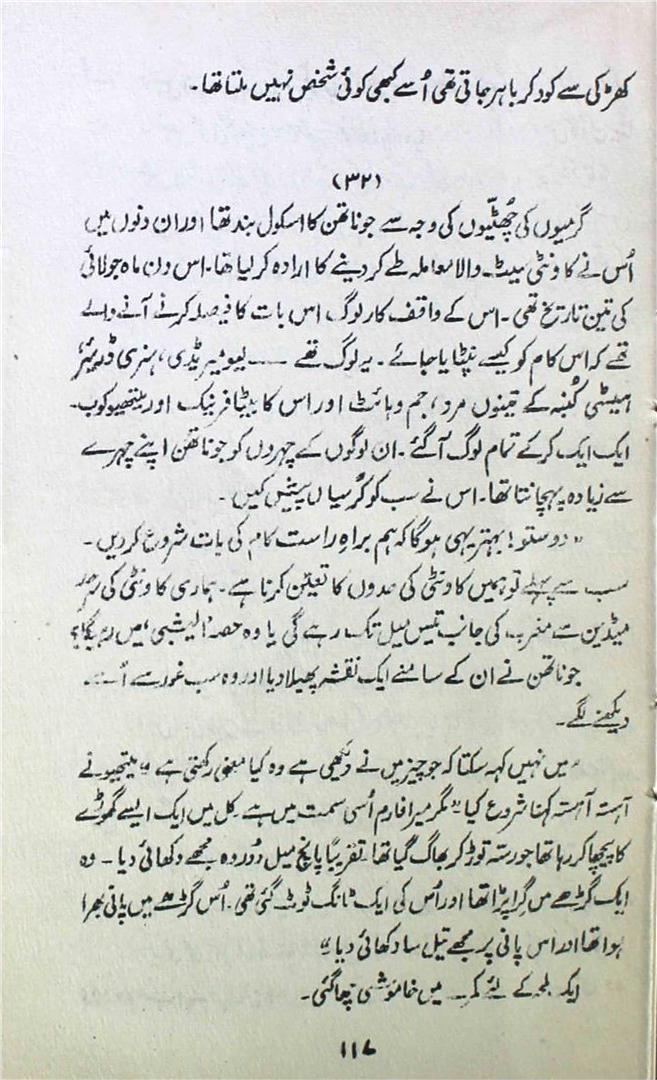 کھڑکی سے کود کر باہر جاتی تھی اُسے کبھی کوئی شخص نہیں ملتا تھا۔
(۳۲)
گرمیوں کی چُھٹیّوں کی وجہ سے جوناتھن کا اسکول بند تھا اور ان دنوں میں
اُس نے کاونٹی سیٹ والا معاملہ طے کر دینے کا ارادہ کر لیا تھا۔ اس دن ماہ جولائی
کی تین تاریخ تھی۔ اس کے واقف کار لوگ اس بات کا فیصلہ کرنے آنے والے
تھے کہ اس کام کو کیسے نپٹایا جائے۔ یہ لوگ تھے —— لیو میریڈی، ہنری ڈرئیر
ہیٹی کُنبہ کے تینوں مرد، جم وہائٹ اور اس کا بیٹا فرنیک اور میتھیو کوب۔
ایک ایک کر کے تمام لوگ آ گئے۔ ان لوگوں کے چہروں کو جوناتھن اپنے چہرے
سے زیادہ پہچانتا تھا۔ اس نے سب کو کرُسیاں پیش کیں۔
”دوستو! بہتر یہی ہو گا کہ ہم براہِ راست کام کی بات شروع کر دیں۔
سب سے پہلے تو ہمیں کاونٹی کی حدوں کا تعیّن کرنا ہے۔ ہماری کاونٹی کی سرحد
میڈین سے مغرب کی جانب تیس میل تک رہے گی یا وہ حصہ ’الیشبی‘ میں رہیگا؟
جوناتھن نے ان کے سامنے ایک نقشہ پھیلا دیا اور وہ سب غور سے اُسے
دیکھنے لگے۔
”میں نہیں کہہ سکتا کہ جو چیز میں نے دیکھی ہے وہ کیا معنی رکھتی ہے“ میتھیو نے
آہستہ آہستہ کہنا شروع کیا ”مگر میرا فارم اُسی سمت میں ہے۔ کل میں ایک ایسے گھوڑے
کا پیچھا کر رہا تھا جو رسّہ توڑ کر بھاگ گیا تھا۔ تقریباً پانچ میل دُور وہ مجھے دکھائی دیا۔ وہ
ایک گڑھے میں گرا پڑا تھا اور اُس کی ایک ٹانگ ٹوٹ گئی تھی۔ اُس گڑھے میں پانی بھرا
ہوا تھا اور اس پانی پر مجھے تیل سا دکھائی دیا۔“
ایک لمحہ کے لئے کمرے میں خاموشی چھا گئی۔
۱۱۷